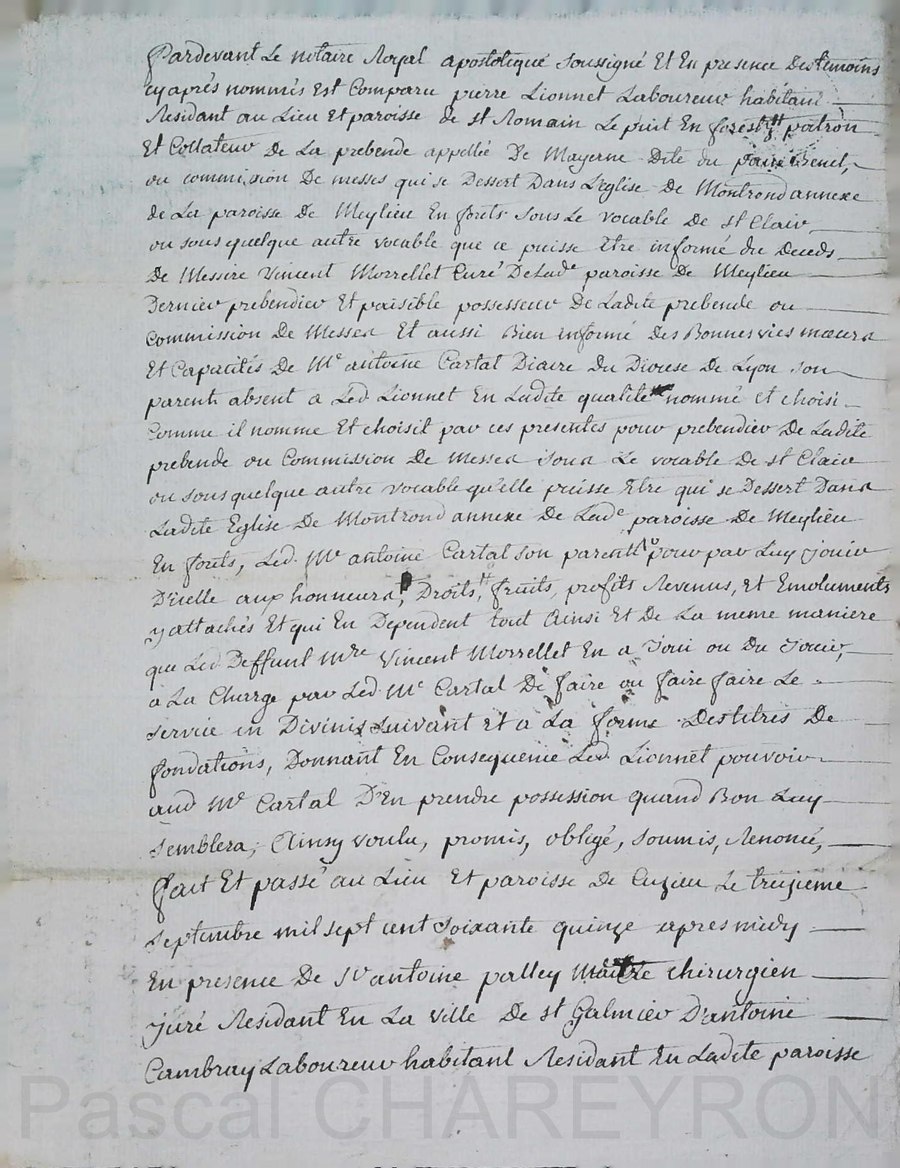 Pardevant Le notaire Royal apostolique soussigné Et En presence Des temoins
cy aprés nommés Est Comparu pierre Lionnet Laboureur habitant
Residant au Lieu Et paroisse de st Romain Le puit En forest patron
Et Collateur De La prebende appellée De Mayerne Dite du
ou commission De messes qui se Dessert Dans L'eglise de Montrond annexe
de La paroisse De Meylieu En forets sous Le vocable De st Clair
ou sous quelque autre vocable que ce puisse Etre informé du Deceds
De Messire Vincent Morrellet Curé De Lade paroisse De Meylieu
Dernier prebendier Et paisible possesseur De Ladite prebende ou
Commission De Messes Et aussi Bien informé des Bonnes vies mœurs
Et Capacités De Me antoine Cartal Diacre Du Diocese De Lyon son
parent absent a Led Lionnet En Ladite qualité nommé et choisi
Comme il nomme Et choisit par ces presentes pour prebendier De Ladite
prebende ou Commission De Messes sous Le vocable De st Clair
ou sous quelque autre vocable qu'elle puisse Etre qui se Dessert Dans
Ladite Eglise De Montrond annexe De Lade paroisse De Meylieu
En forets, Led. Me antoine Cartal son parent pour par Luy jouir
D'icelle aux honneurs, Droits, fruits, profits Revenus, et Emoluments
y attachés Et qui En Dependent tout Ainsi Et De La meme maniere
que Led Deffunt Mre Vincent Morrellet En a Joui ou Du Jouir,
a La Charge par Led. Me Cartal De faire ou faire faire Le
service in Divinis suivant et a La forme Des titres De
fondations, Donnant En Consequence Led Lionnet pouvoir
aud Me Cartal D'En prendre possession quand Bon Luy
semblera, Ainsy voulu, promis, obligé, soumis, Renoncé,
fait Et passé au Lieu Et paroisse De Cuzieu Le treizieme
septembre mil sept cent soixante quinze apres midy
En presence De Sr antoine palley Maître chirurgien
juré Residant En La ville De st Galmier D'antoine
Cambray Laboureur habitant Residant En Ladite paroisse
Pascal CHAREYRON